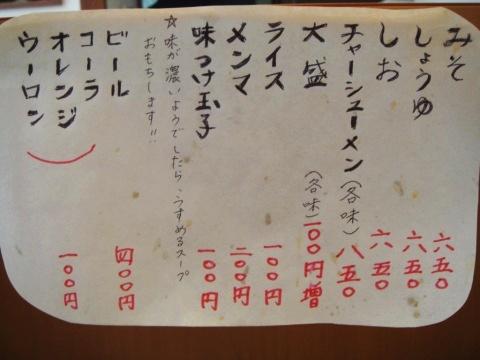 みそ 六五〇
しょうゆ 六五〇
しお 六五〇
チャーシューメン(各味) 八五〇
大盛(各味) 100円増
ライス 一〇〇円
メンマ 二〇〇円
味つけ玉子 一〇〇円
☆味が濃いようでしたら、うすめるスープ
おもちします!!
ビール 四〇〇円
コーラ
オレンジ 一〇〇円
ウーロン